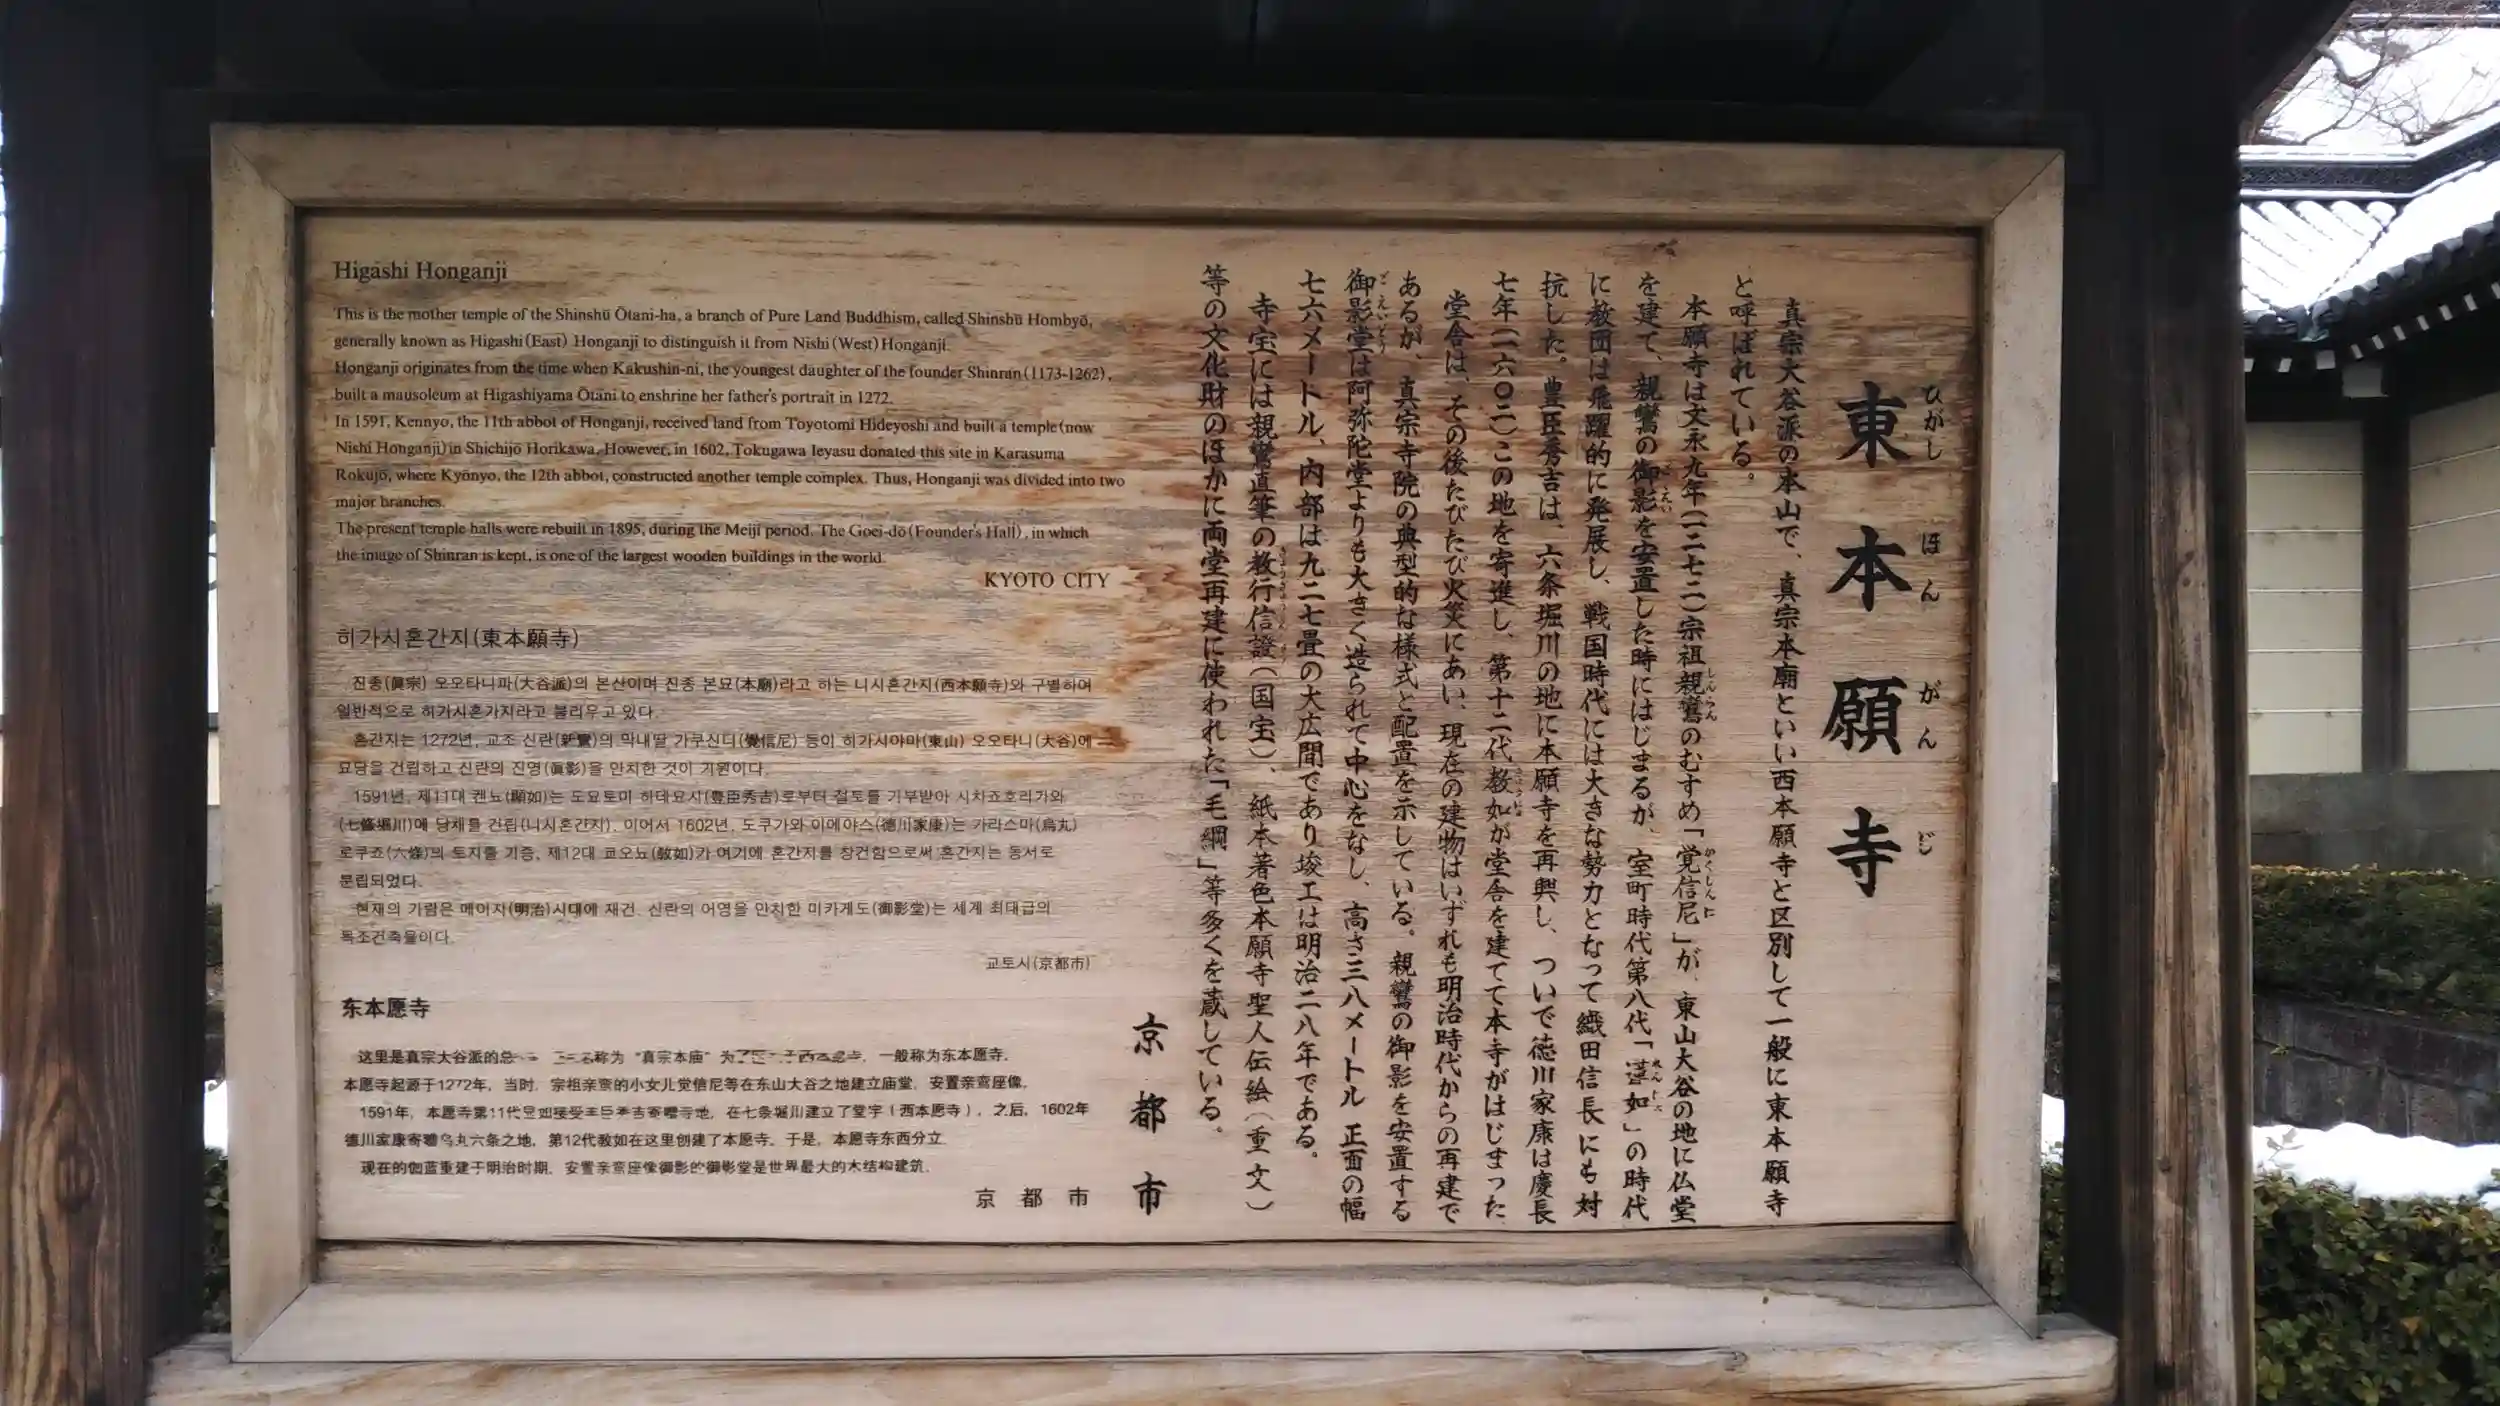 東本願寺
ひがし ほん がん じ
真宗大谷派の本山で、真宗本廟といい西本願寺と区別して一般に東本願寺
と呼ばれている。
本願寺は文永九年(一二七二)宗祖親鸞のむすめ「覚信尼」が、東山大谷の地に仏堂
を建て、親鸞の御影を安置した時にはじまるが、室町時代第八代「蓮如」の時代
に教団は飛躍的に発展し、戦国時代には大きな勢力となって織田信長にも対
抗した。豊臣秀吉は、六条堀川の地に本願寺を再興し、ついで徳川家康は慶長
七年(一六〇二)この地を寄進し、第十二代教如が堂舎を建てて本寺がはじまった
堂舎は、その後たびたび火災にあい、現在の建物はいずれも明治時代からの再建で
あるが、真宗寺院の典型的な様式と配置を示している。親鸞の御影を安置する
御影堂は阿弥陀堂よりも大きく造られて中心をなし、高さ三八メートル 正面の幅
七六メートル、内部は九二七畳の大広間であり竣工は明治二八年である。
寺宝には親鸞真筆の教行信證(国宝)、紙本著色本願寺聖人伝絵(重文)
等の文化財のほかに両堂再建に使われた「毛綱」等多くを蔵している。
京都市
Higashi Honganji
This is the mother temple of the Shinshū Ōtani-ha, a branch of Pure Land Buddhism, called Shinshū Hombyō,
generally known as Higashi (East) Honganji to distinguish it from Nishi (West) Honganji.
Honganji originates from the time when Kakushin-ni, the youngest daughter of the founder Shinran (1173-1262),
built a mausoleum at Higashiyama Ōtani to enshrine her father's portrait in 1272.
In 1591, Kennyo, the 11th abbot of Honganji, received land from Toyotomi Hideyoshi and built a temple (now
Nishi Honganji) in Shichijō Horikawa. However, in 1602, Tokugawa Ieyasu donated this site in Karasuma
Rokujō, where Kyōnyo, the 12th abbot, constructed another temple complex. Thus, Honganji was divided into two
major branches.
The present temple halls were rebuilt in 1895, during the Meiji period. The Goei-dō (Founder's Hall), in which
the image of Shinran is kept, is one of the largest wooden buildings in the world.
KYOTO CITY
히가시혼간지(東本願寺)
진종(眞宗) 오오타니파(大谷派)의 본산이며 진종 본묘(本廟)라고 하는 니시혼간지(西本願寺)와 구별하여
일반적으로 히가시혼가지라고 불리우고 있다.
혼간지는 1272년, 교조 신란(新鸞)의 막내딸 가쿠신니(覺信尼) 등이 히가시야마(東山) 오오타니(大谷)에
묘당을 건립하고 신란의 진영(眞影)을 안치한 것이 기원이다.
1591년, 제11대 켄뇨(顯如)는 도요토미 히데요시(豊臣秀吉)로부터 절토를 기부받아 시치죠호리가와
(七條堀川)에 당체를 건립(니시혼간지). 이어서 1602년, 도쿠가와 이에야스(德川家康)는 카라스마(烏丸)
로쿠죠(六條)의 토지를 기증, 제12대 교오뇨(敎如)가 여기에 혼간지를 창건함으로써 혼간지는 동서로
분립되었다.
현재의 가람은 메이지(明治)시대에 재건. 신란의 어영을 안치한 미카게도(御影堂)는 세계 최대급의
목조건축물이다.
교토시(京都市)
东本愿寺
这里是真宗大谷派的总 称为 “真宗本庙” 为了 西本愿寺，一般称为东本愿寺。
本愿寺起源于1272年，当时，宗祖亲鸾的小女儿觉信尼等在东山大谷之地建立庙堂，安置亲鸾座像。
1591年，本愿寺第11代显如接受丰臣秀吉寄赠寺地，在七条堀川建立了堂宇（西本愿寺）。之后，1602年
德川家康寄赠乌丸六条之地，第12代教如在这里创建了本愿寺。于是，本愿寺东西分立。
现在的伽蓝重建于明治时期。安置亲鸾座像御影的御影堂是世界最大的木结构建筑。
京都市